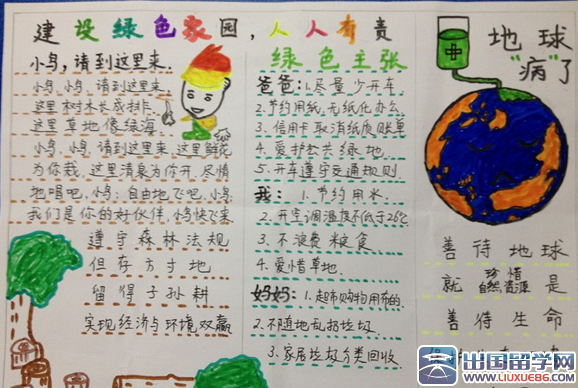 建设绿色家园，人人有责
小鸟，请到这里来.
小鸟，小鸟，请到这里来.
这里树木长成排.
这里草地像绿海.
小鸟，小鸟，请到这里来.这里鲜花
为你栽，这里清泉为你开，尽情
地唱吧，小鸟；自由地飞吧，小鸟；
我们是你的好伙伴，小鸟快飞来
遵守森林法规
但存方寸地
留得子孙耕
实现经济与环境双赢
绿色主张
爸爸：1.尽量少开车.
2.节约用纸，无纸化办公.
3.信用卡取消纸质账单
4.爱护公共绿地.
5.开车遵守交通规则.
我：1.节约用水.
2.开空调温度不低于26℃
3.不浪费粮食
4.爱惜草地.
妈妈：1.超市购物用布的.
2.不随地乱扔垃圾.
3.家居垃圾分类回收.
地球
“病”了
善待地球
就珍惜自然资源是
善待生命
出国留学网
www.liuxue86.com